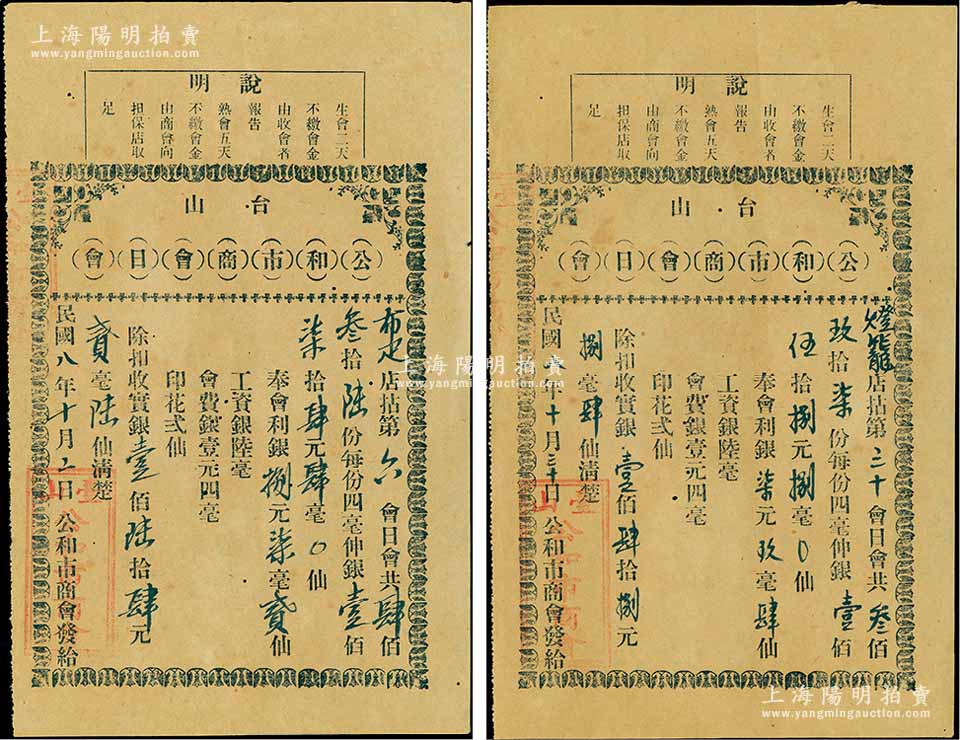 上海陽明拍賣
www.yangmingauction.com
說明
生會二天
不繳會金
由收會者
報告
熟會五天
不繳會金
由商會向
担保店取
足
台山
(公)(和)(市)(商)(會)(日)(會)
布疋店拈第六會日會共肆佰
叁拾陆份每份四毫伸銀壹佰
柒拾肆元肆毫0仙
奉會利銀捌元柒毫貳仙
工資銀陸毫
會費銀壹元四毫
印花弍仙
除扣收實銀壹佰陆拾肆元
貳毫陆仙清楚
民國八年十月二日公和市商會發給
說明
生會二天
不繳會金
由收會者
報告
熟會五天
不繳會金
由商會向
担保店取
足
台山
(公)(和)(市)(商)(會)(日)(會)
燈籠店拈第二十會日會共叁佰
玖拾柒份每份四毫伸銀壹佰
伍拾捌元捌毫0仙
奉會利銀柒元玖毫肆仙
工資銀陸毫
會費銀壹元四毫
印花弍仙
除扣收實銀壹佰肆拾捌元
捌毫肆仙清楚
民國八年十月三十日公和市商會發給
上海陽明拍賣
www.yangmingauction.com
上海陽明拍賣
www.yangmingauction.com